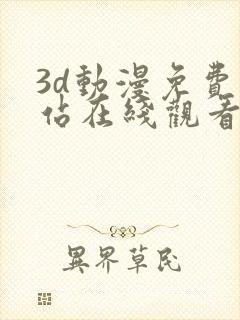 3d動漫免費
佔在綫觀看
異界草民